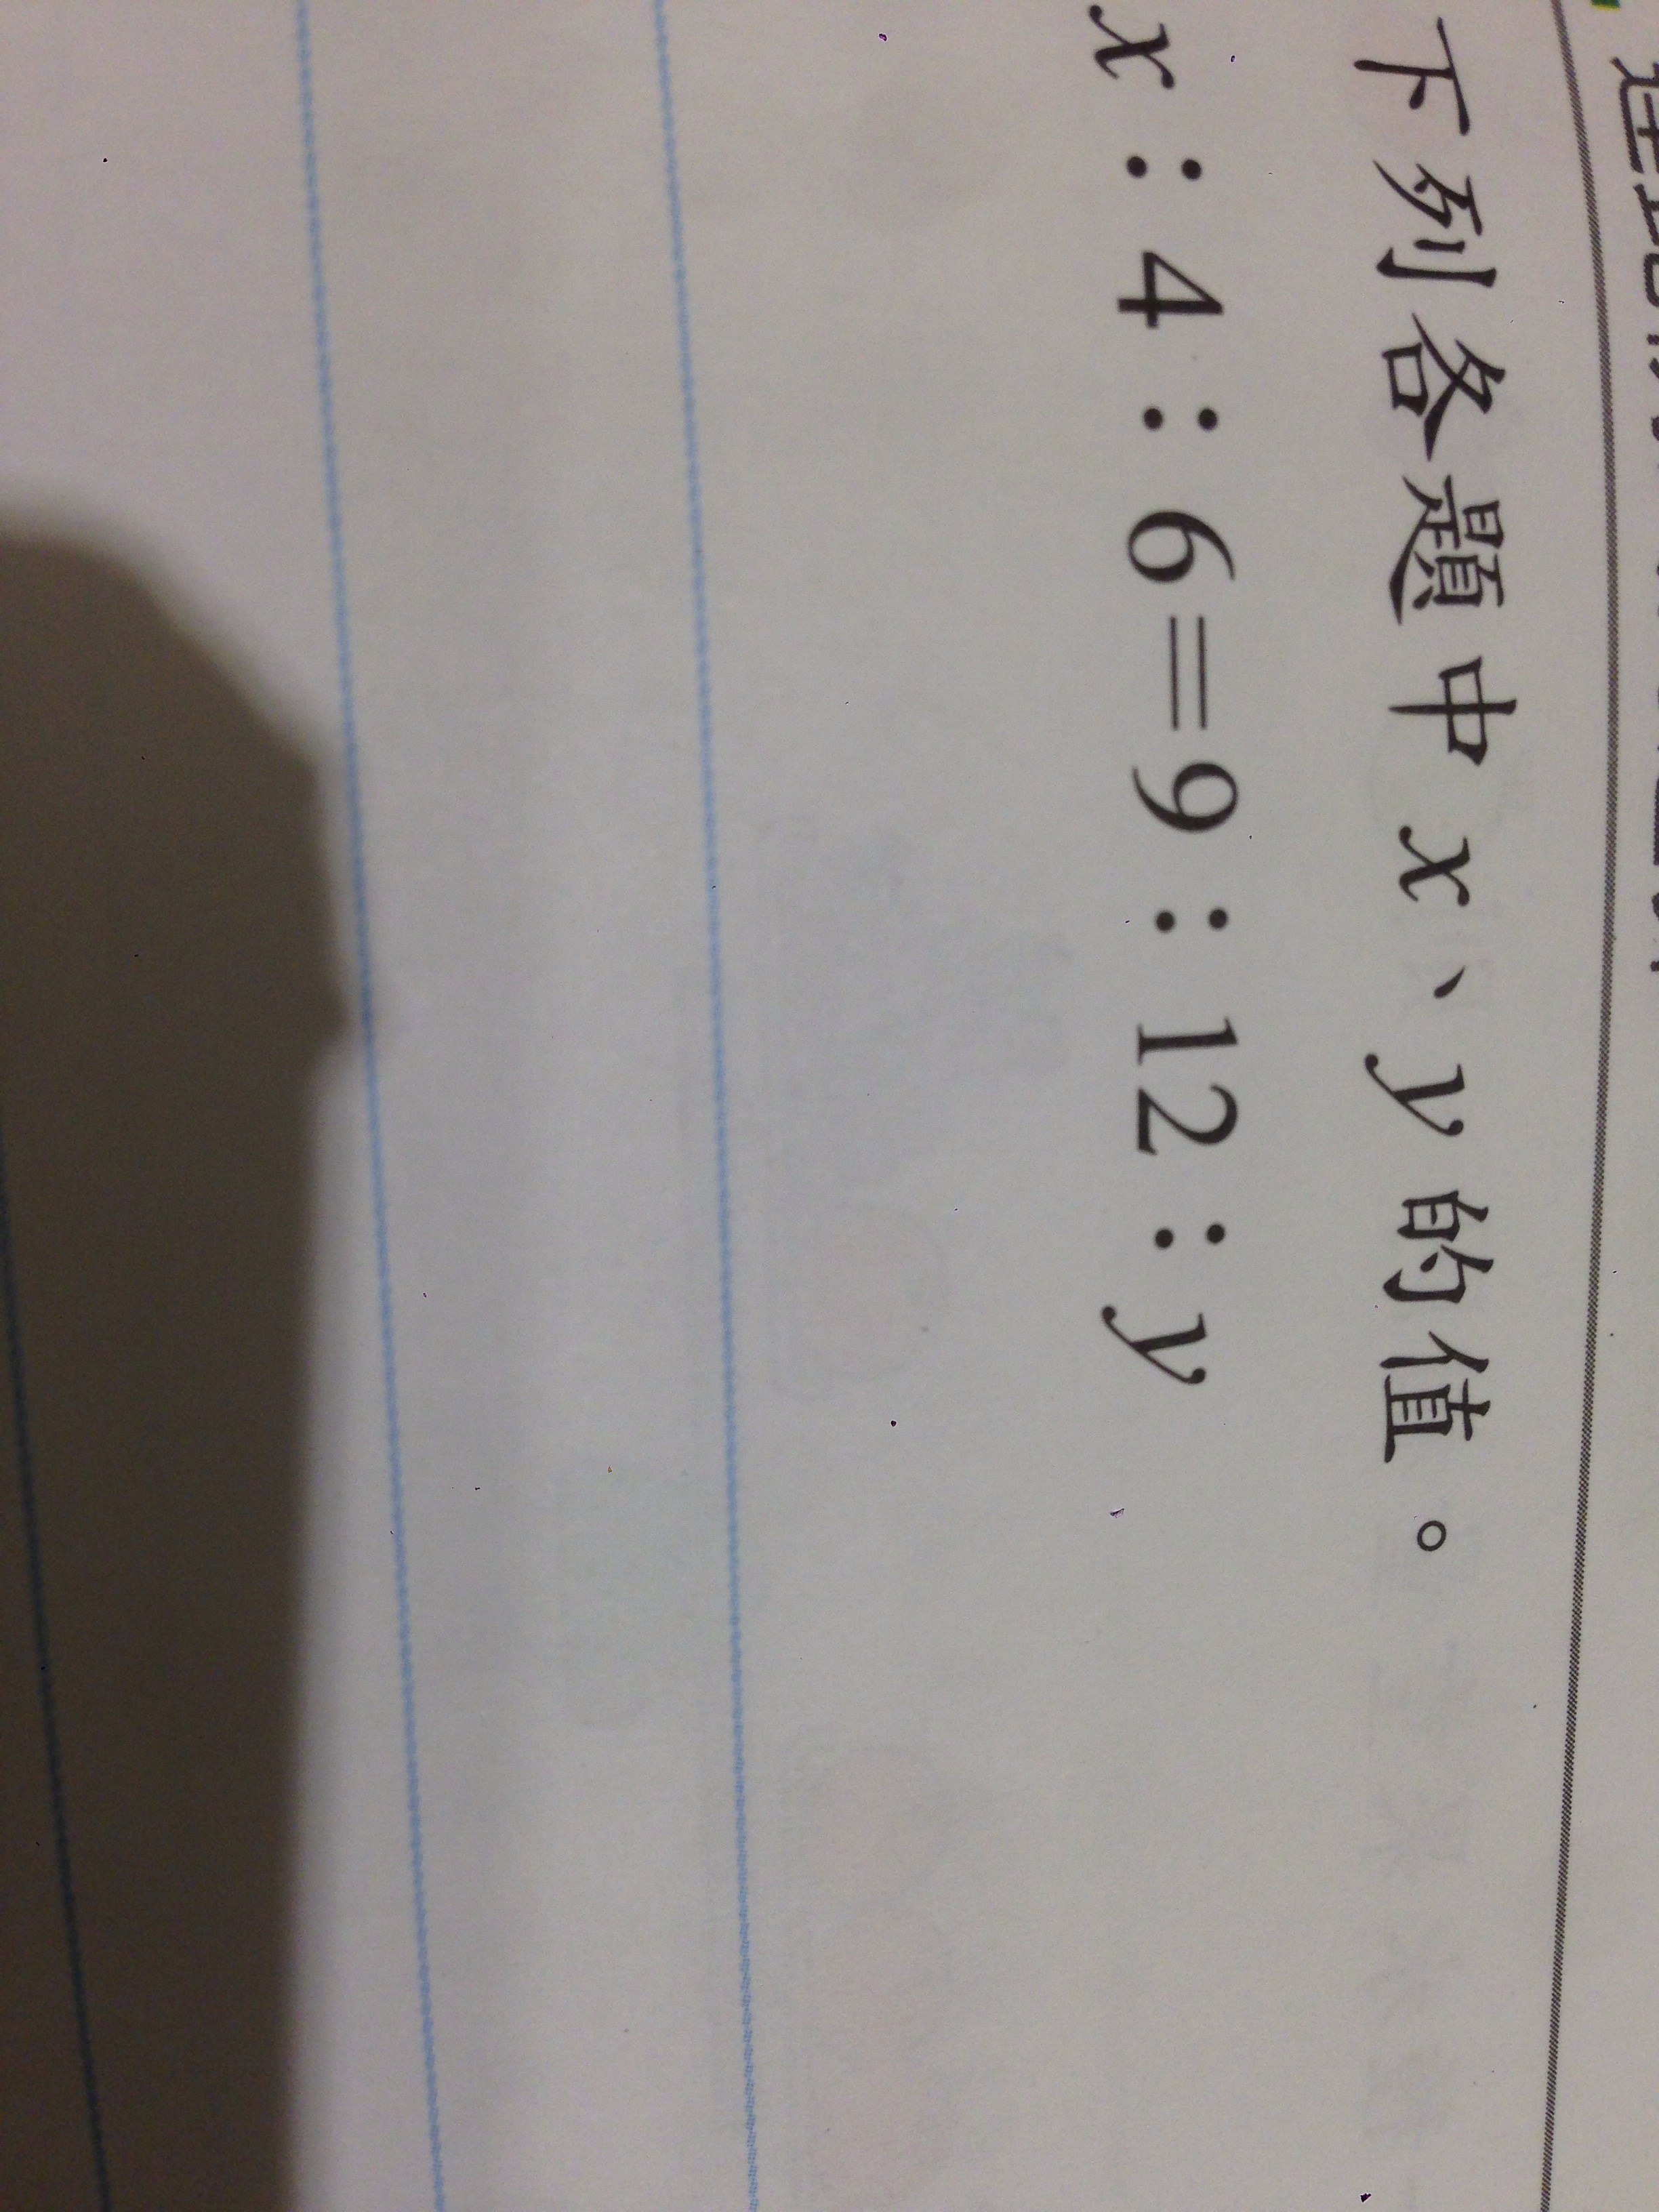 下列各題中 x、y 的值。
x：4：6＝9：12：y